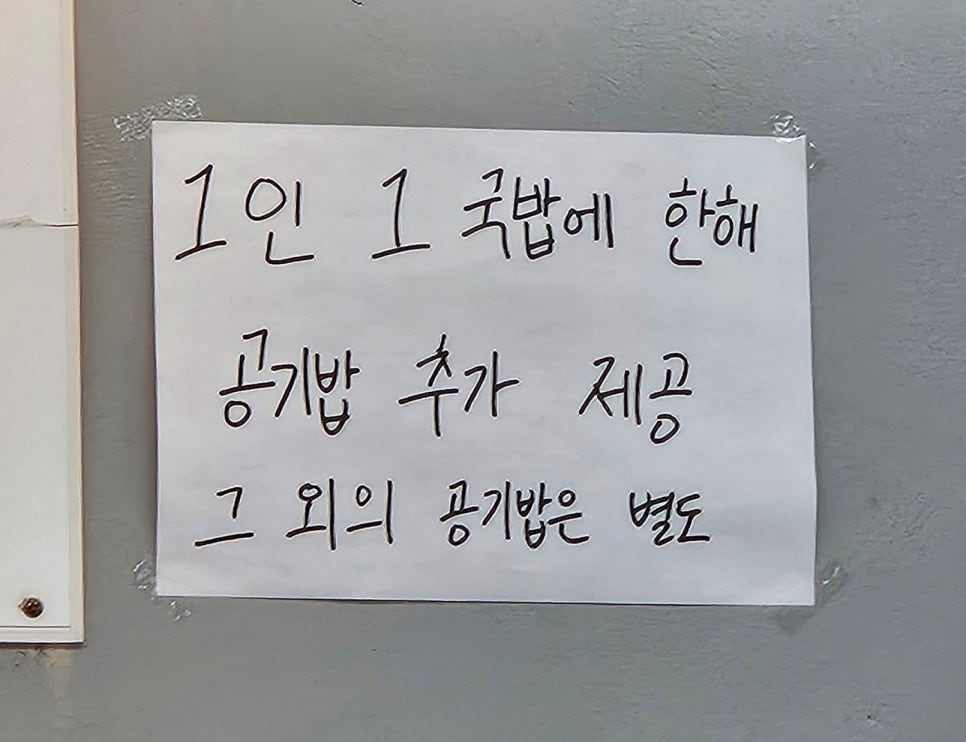 1인 1 국밥에 한해
공기밥 추가 제공
그 외의 공기밥은 별도